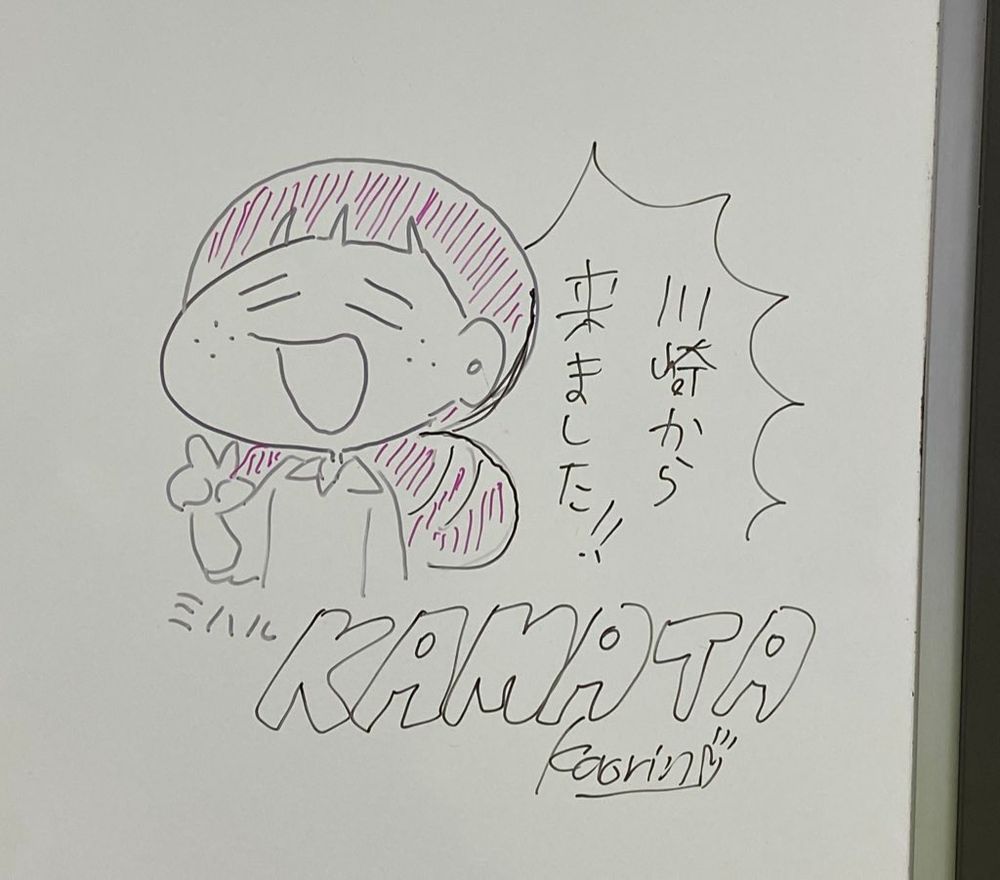 川崎から
来ました!!
ミハル
KAMATA
Kaorin